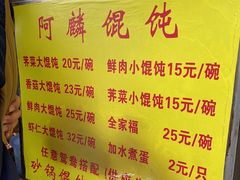 阿麟馄饨
荠菜大馄饨 20元/碗 鲜肉小馄饨15元/碗
香菇大馄饨 23元/碗 荠菜小馄饨15元/碗
鲜肉大馄饨 25元/碗 全家福 25元/碗
虾仁大馄饨 32元/碗 加水煮蛋 2元/只
任意鸳鸯搭配
砂锅馄